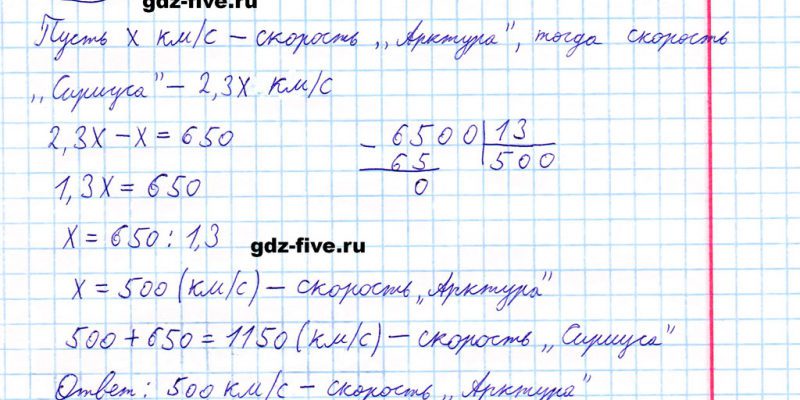 gdz-five.ru
Пусть х км/с – скорость „Арктура", тогда скорость
„Сириуса" – 2,3х км/с
2,3х – х = 650
1,3х = 650
х = 650 : 1,3
– 6500 | 13
65 | 500
0
gdz-five.ru
х = 500 (км/с) – скорость „Арктура"
500 + 650 = 1150 (км/с) – скорость „Сириуса"
Ответ: 500 км/с – скорость „Арктура"